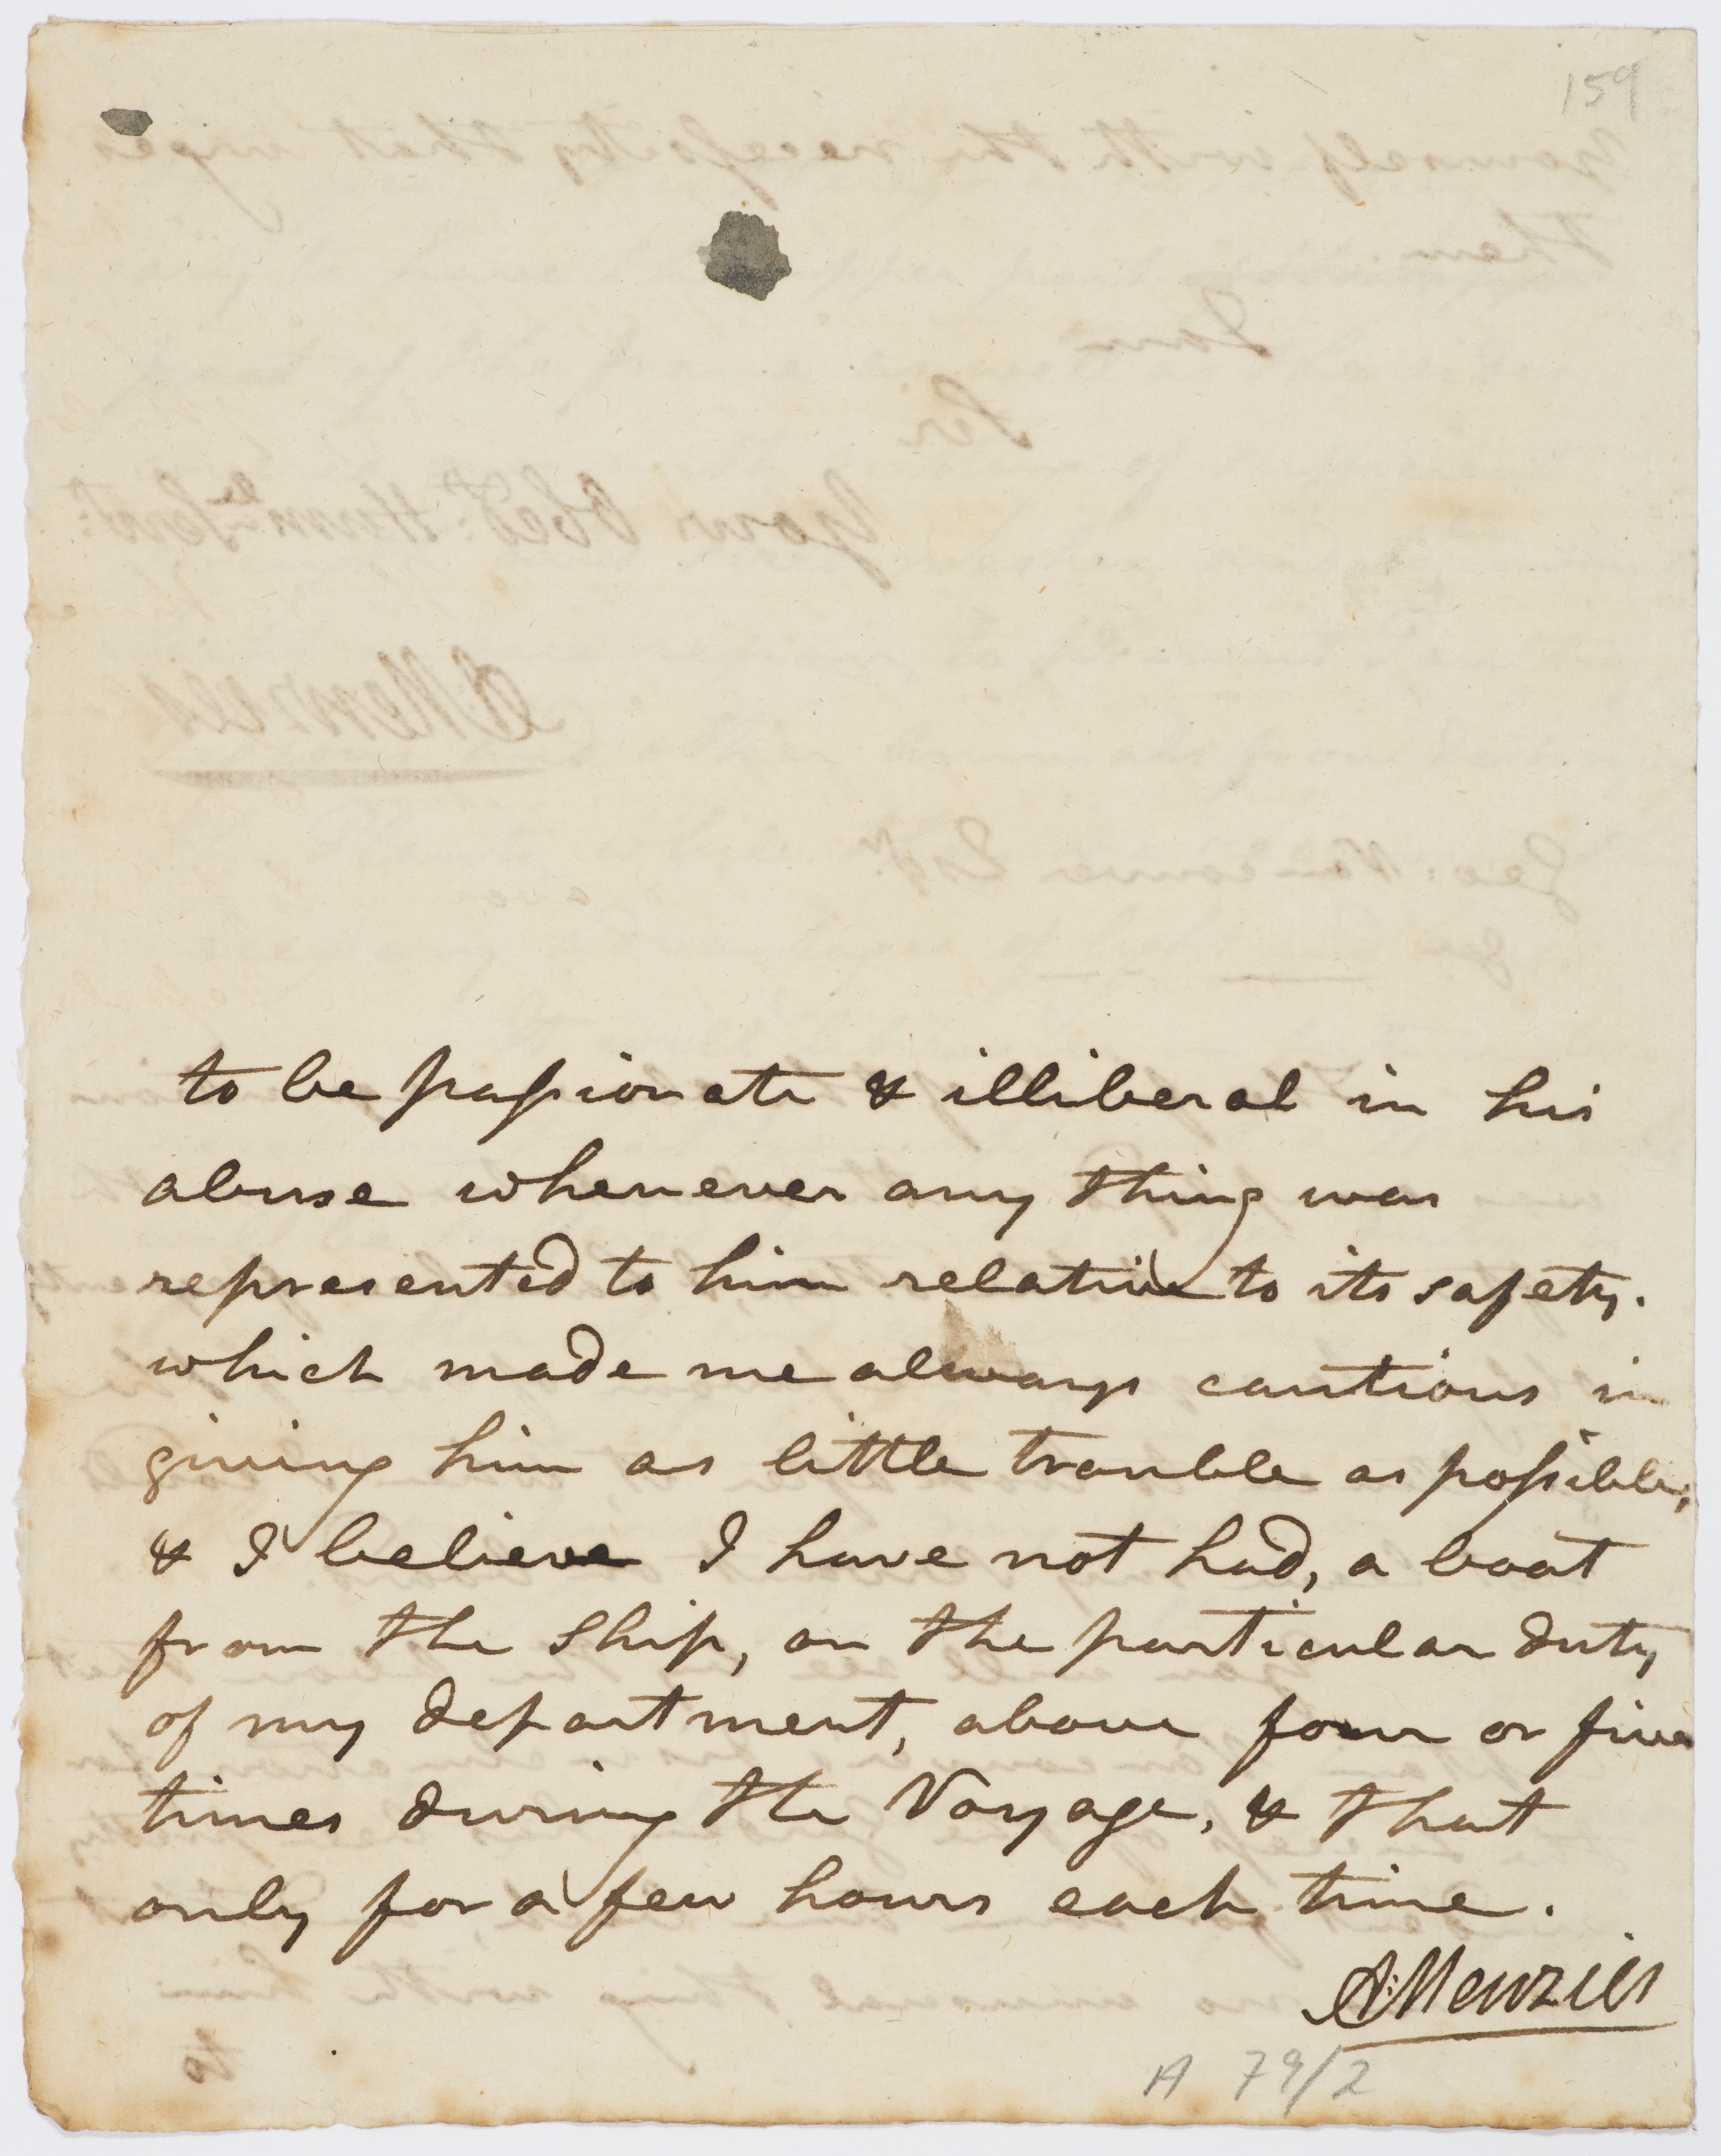 159
to be paſsionate & illiberal in his
abuse whenever any thing was
represented to him relative to its safety.
which made me always cautious in
giving him as little trouble as poſsible,
& I believe I have not had, a boat
from the Ship, on the particular duty
of my department, above four or five
times during the Voyage, & that
only for a few hours each time.
A: Menzies
A 79/2